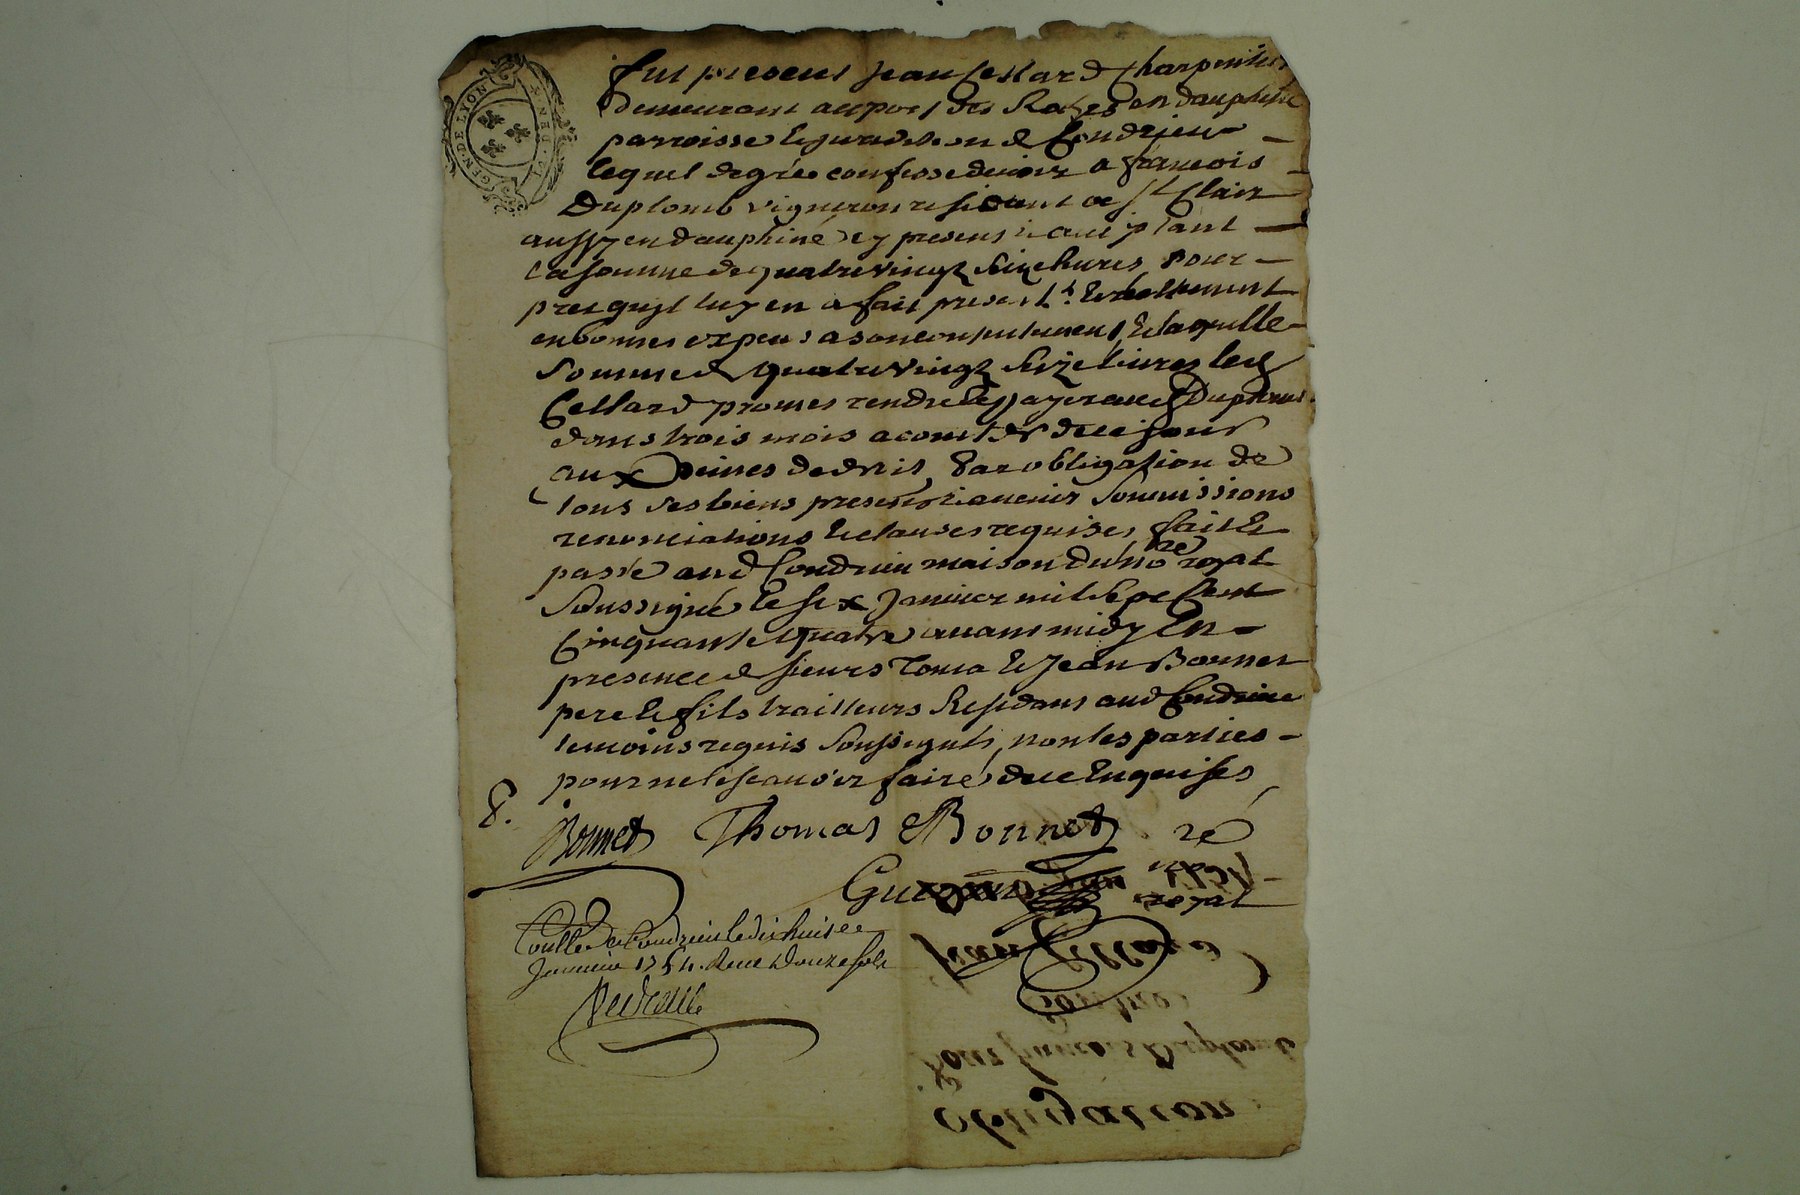 GEN. DE LYON
Fut present Jean Cellard Charpentier
demeurant au port des Roches en dauphiné
parroisse & jurisdiction de Condrieu
lequel de gré a confessé devoir a françois
Duplomb vigneron residant de St Clair
aussy en dauphiné icy present & acceptant
la somme de quatre vingt seize livres pour
prest qu'il luy en a fait present. & réellement
en bonnes especes a son contentement, & laquelle
somme de quatre vingt seize livres led
Cellard promet rendre & payer aud Duplomb
dans trois mois a compter de ce jour
aux peines de droit, par obligation de
tous ses biens presents & avenir soumissions
renonciations & clauses requises fait &
passé aud Condrieu maison du nore royal
soussigné le six Janvier mil sept cent
cinquante quatre avant midy en
presence de sieurs Toma & Jean Bonnet
pere & fils trailleurs residants aud Condrieu
temoins requis soussignés, non les parties
pour ne le scavoir faire de ce enquises
Bonnet Thomas Bonnet
royal
Conllé a Condrieu le dix huit
Janvier 1754. Receu douze sols
Jean Cellard
Contre
Pour françois Duplomb
Obligation